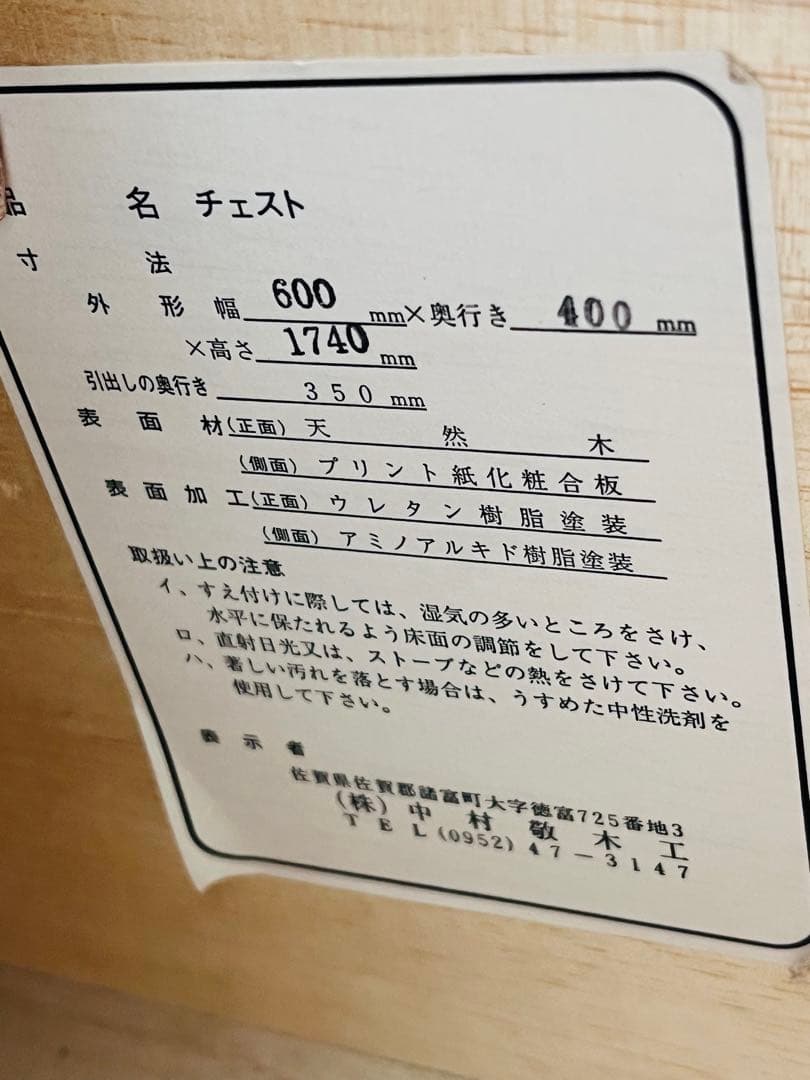 品名 チェスト
寸法
外形 幅 600 mm×奥行き 400 mm
×高さ 1740 mm
引出しの奥行き 350mm
表面材(正面) 天然木
(側面) プリント紙化粧合板
表面加工(正面) ウレタン樹脂塗装
(側面) アミノアルキド樹脂塗装
取扱い上の注意
イ、すえ付けに際しては、湿気の多いところをさけ、
水平に保たれるよう床面の調節をして下さい。
ロ、直射日光又は、ストーブなどの熱をさけて下さい。
ハ、著しい汚れを落とす場合は、うすめた中性洗剤を
使用して下さい。
表示者
佐賀県佐賀郡諸富町大字徳富725番地3
(株)中村敬木工
TEL(0952)47-3147